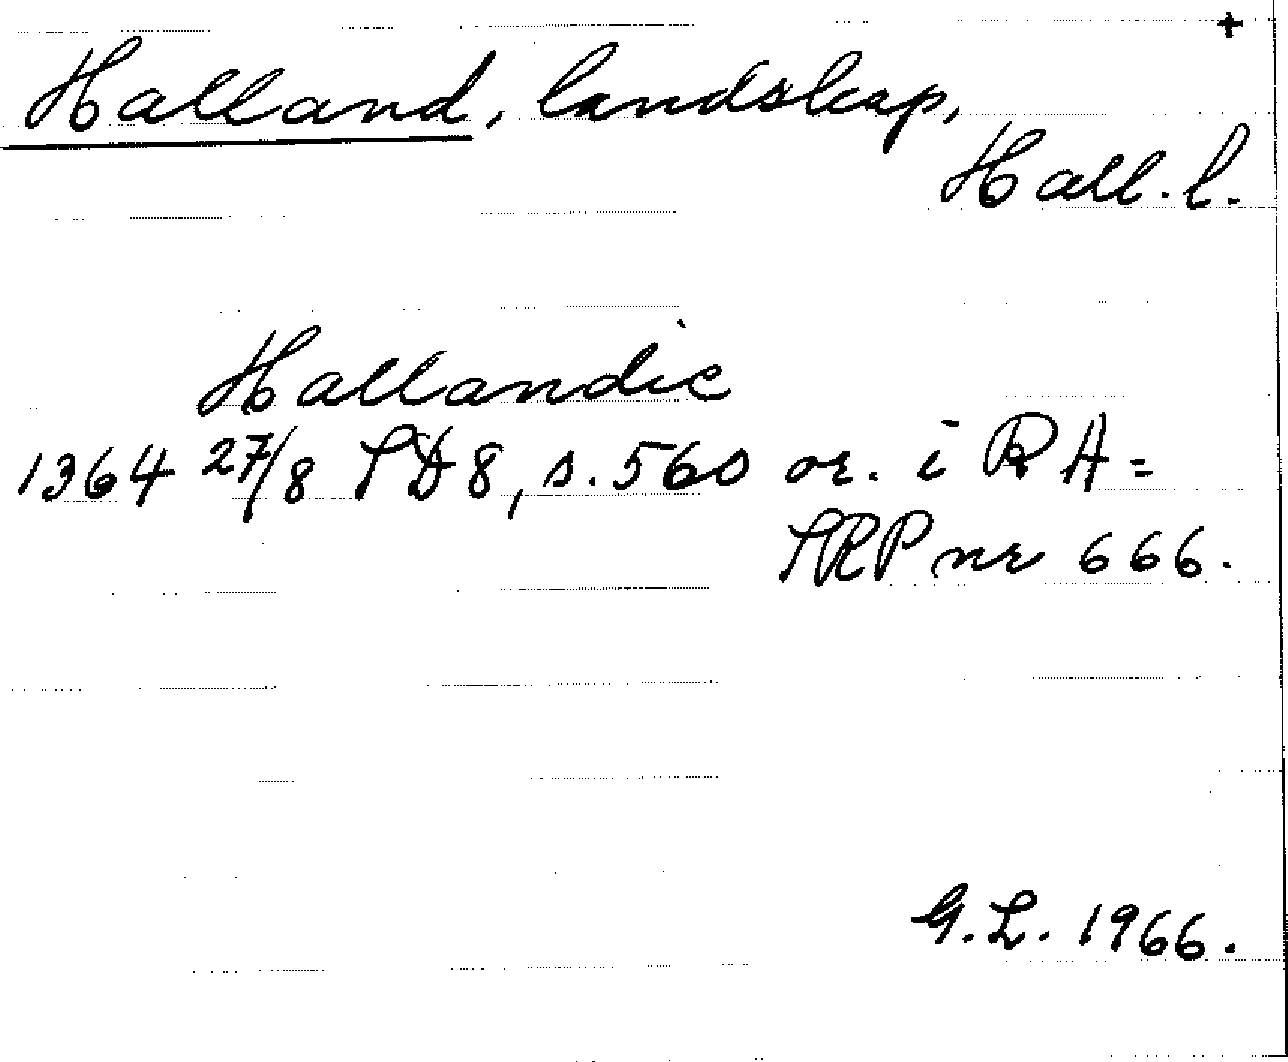 +
Halland, landskap,
Hall. l.
Hallandie
1364 27/8 SD 8, s. 560 or. i RA =
SRP nr 666.
G.L. 1966.